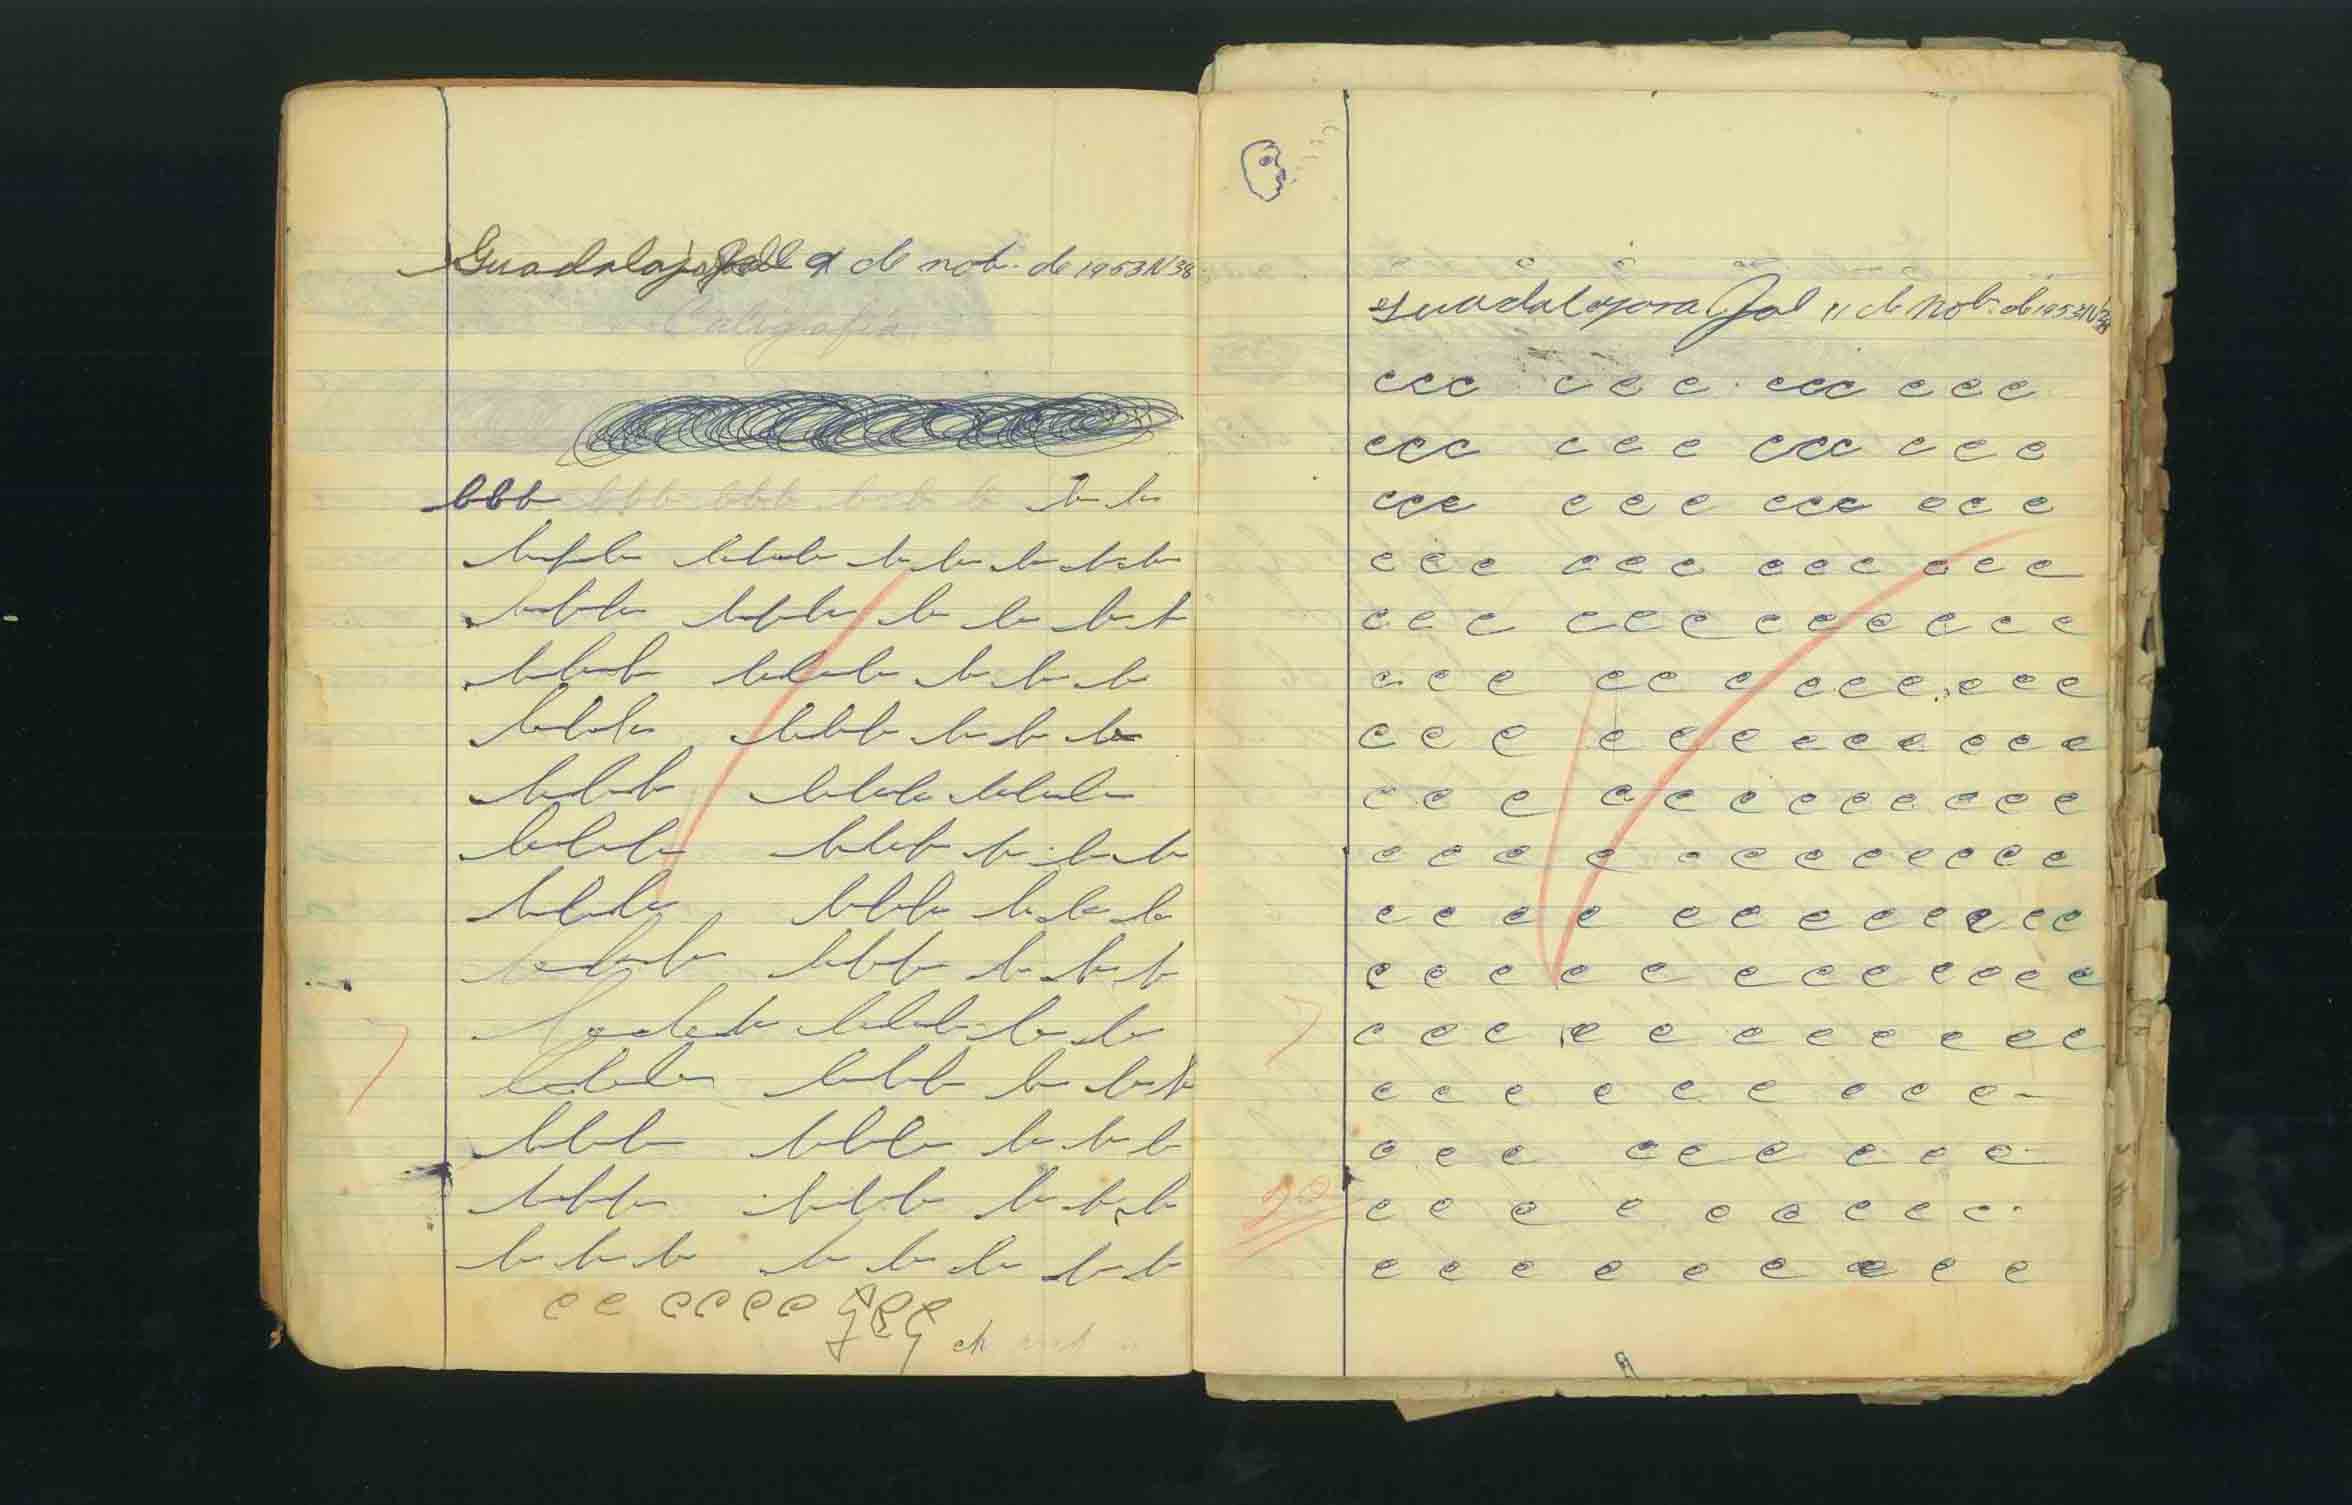 Guadalajara Jal 9 de nob. de 1953 N 38
Caligrafía
bbb bbb bbb b b b b b
b b b b b b b b b b b
b b b b b b b b b b
b b b b b b b b b
b b b b b b b b b
b b b b b b b b b
b b b b b b b b b
b b b b b b b b b
b b b b b b b b b
b b b b b b b b
b b b b b b b b b
b b b b b b b b b
b b b b b b b b b
b b b b b b b b
e e e e e e
Guadalajara Jal 11 de Nob. de 1953 N 38
ccc c c c ccc c c c
ccc c c c ccc c c c
ccc c c c ccc c c c
c c c c c c c c c c c c
c c c c c c c c c c c c
c c c c c c c c c c c c
c c c c c c c c c c c c
c c c c c c c c c c c c
c c c c c c c c c c c c
c c c c c c c c c c c c
c c c c c c c c c c c c
c c c c c c c c c c c
c c c c c c c c c
c c c c c c c c c
c c c c c c c c c
c c c c c c c c c